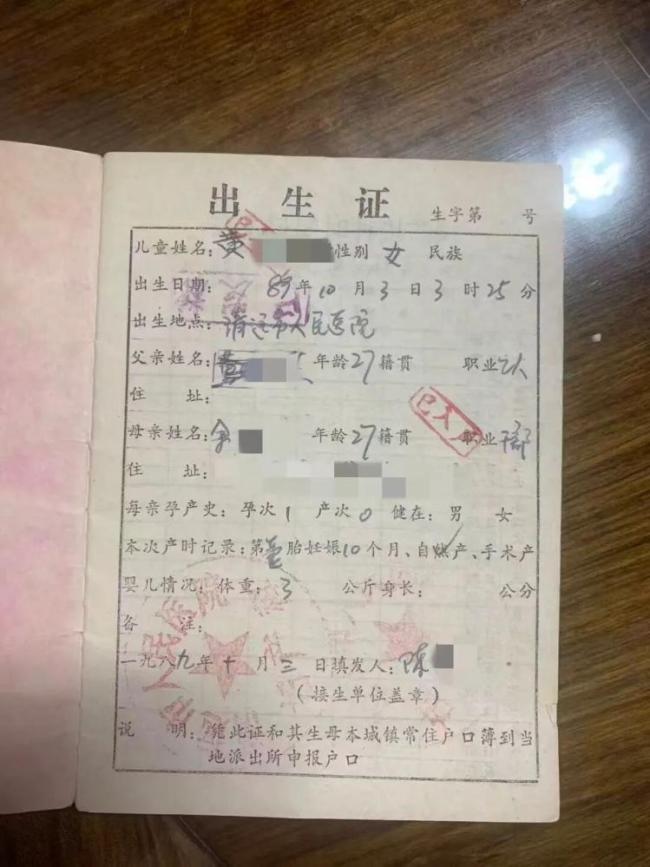 出生证 生字第 号
儿童姓名:黄 性别 女 民族
出生日期: 89年10月3日3时25分
出生地点:清远市人民医院
父亲姓名: 年龄27籍贯 职业工人
住 址:
已入户
母亲姓名:余 年龄27籍贯 职业干部
住 址:
母亲孕产史:孕次1 产次0 健在:男 女
本次产时记录:第壹胎妊娠10个月、自然产、手术产
婴儿情况:体重:3 公斤身长: 公分
备 注:
一九八九年十月三日填发人:陈
(接生单位盖章)
说 明:凭此证和其生母本城镇常住户口薄到当
地派出所申报户口